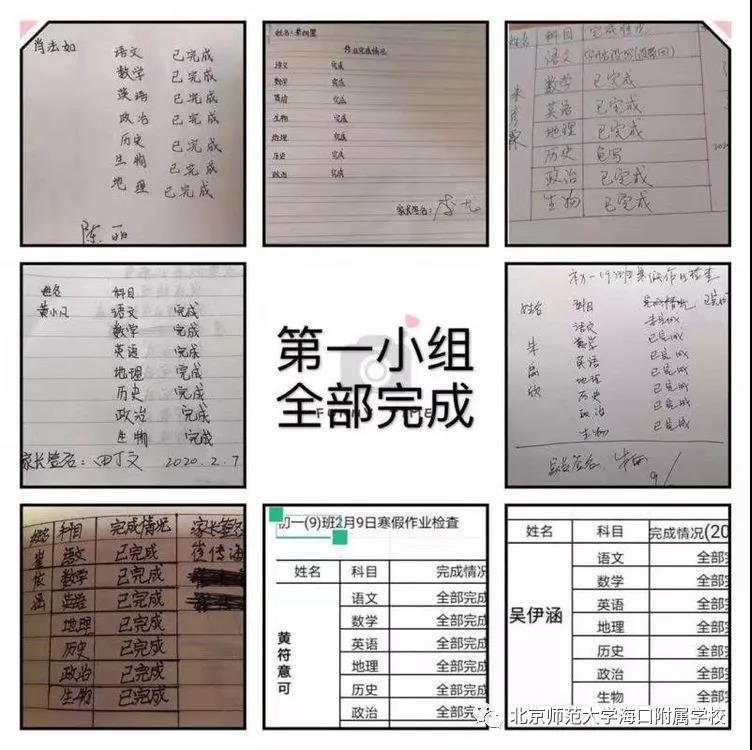 语文 已完成
数学 已完成
英语 已完成
政治 已完成
历史 已完成
生物 已完成
地理 已完成
作业完成情况
语文 完成
数学 完成
英语 完成
生物 完成
地理 完成
历史 完成
政治 完成
家长签名:
姓名 科目 完成情况
语文
数学 已完成
英语 已完成
地理 已完成
历史
政治 已完成
生物 已完成
姓名 科目
黄小凡 语文 完成
数学 完成
英语 完成
地理 完成
历史 完成
政治 完成
生物 完成
家长签名: 2020.2.7
第一小组
全部完成
初一(9)班寒假作业检查
姓名 科目 完成情况
语文 已完成
数学 已完成
英语 已完成
地理 已完成
历史 已完成
政治 已完成
生物
姓名 科目 完成情况
语文 已完成
数学 已完成
英语 已完成
地理 已完成
历史 已完成
政治 已完成
生物 已完成
初一(9)班2月9日寒假作业检查
姓名 科目 完成情况
黄符意可
语文 全部完成
数学 全部完成
英语 全部完成
地理 全部完成
历史 全部完成
政治 全部完
姓名 科目 完成情况(20
吴伊涵
语文 全部
数学 全部
英语 全部
地理 全部
历史 全部
政治 全部
生物 全部
北京师范大学海口附属学校